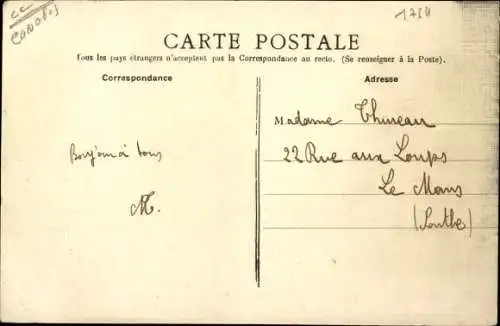 1784
CARTE POSTALE
Tous les pays étrangers n'acceptent pas la Correspondance au recto. (Se renseigner à la Poste).
Correspondance
Adresse
Madame Thureau
22 Rue aux Loups
Le Mans
(Sarthe)
Bonjour à tous
M.